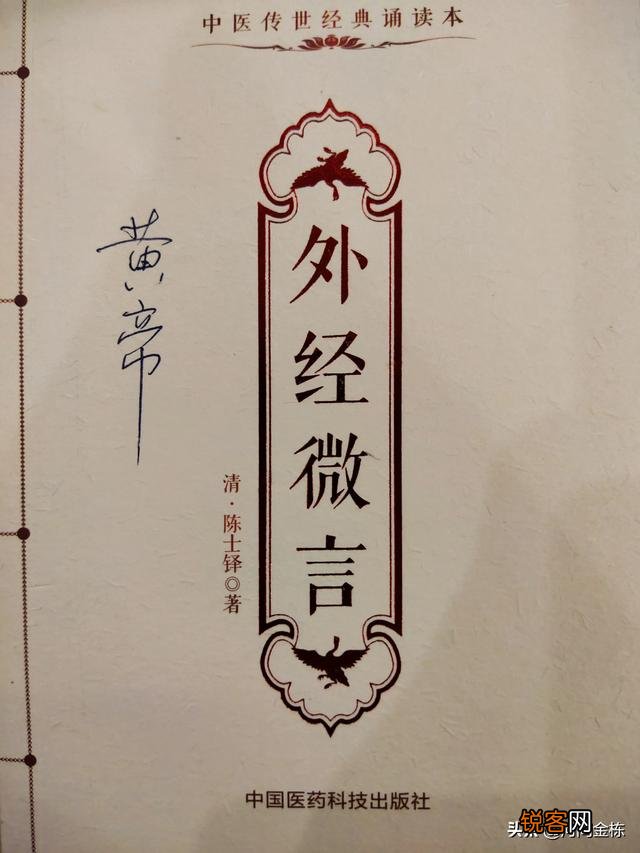 中医传世经典诵读本
黄帝
外经微言
清·陈士铎◎著
中国医药科技出版社
头条
金栋
锐客网